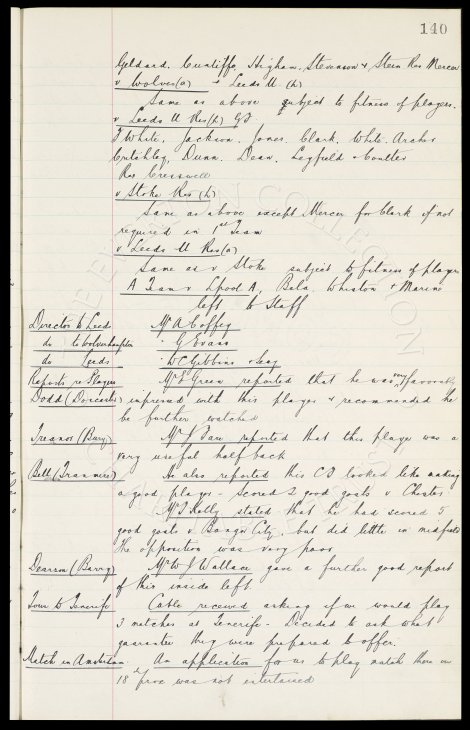 140
Geldard, Cunliffe, Higham, Stevenson & Stein Res Mercer
v Wolves (a) & Leeds U. (h)
Same as above subject to fitness of players.
v Leeds U Res (h) G.J.
T White, Jackson, Jones, Clark, White, Archer
Critchley, Dunn, Dean, Leyfield & Coulter
Res Cresswell
v Stoke Res (h)
Same as above except Mercer for Clark if not
required in 1st Team
v Leeds U Res (a)
Same as v Stoke subject to fitness of players
A Team v Lpool A, Bela, Whiston & Marine
left to Staff
Director to Leeds Mr A Coffey
do to Wolverhampton " G Evans
do Leeds " W C Gibbins & Sec
Reports re Players Mr Green reported that he was very favorably
Dodd (Doncaster) impressed with this player & recommended he
be further watched
Treanor (Bury) Mr J Taw reported that this player was a
very useful half back
Bell (Tranmere) He also reported this CF looked like making
a good player - scored 2 good goals v Chester
Mr T Kelly stated that he had scored 5
good goals v Bangor City, but did little in midfield
The opposition was very poor
Dearson (Barry) Mr W J Wallace gave a further good report
of this inside left.
Tour to Tenerife Cable received asking if we would play
3 matches at Tenerife - Decided to ask what
guarantee they were prepared to offer.
Match in Amsterdam An application for us to play match there on
18th prox was not entertained